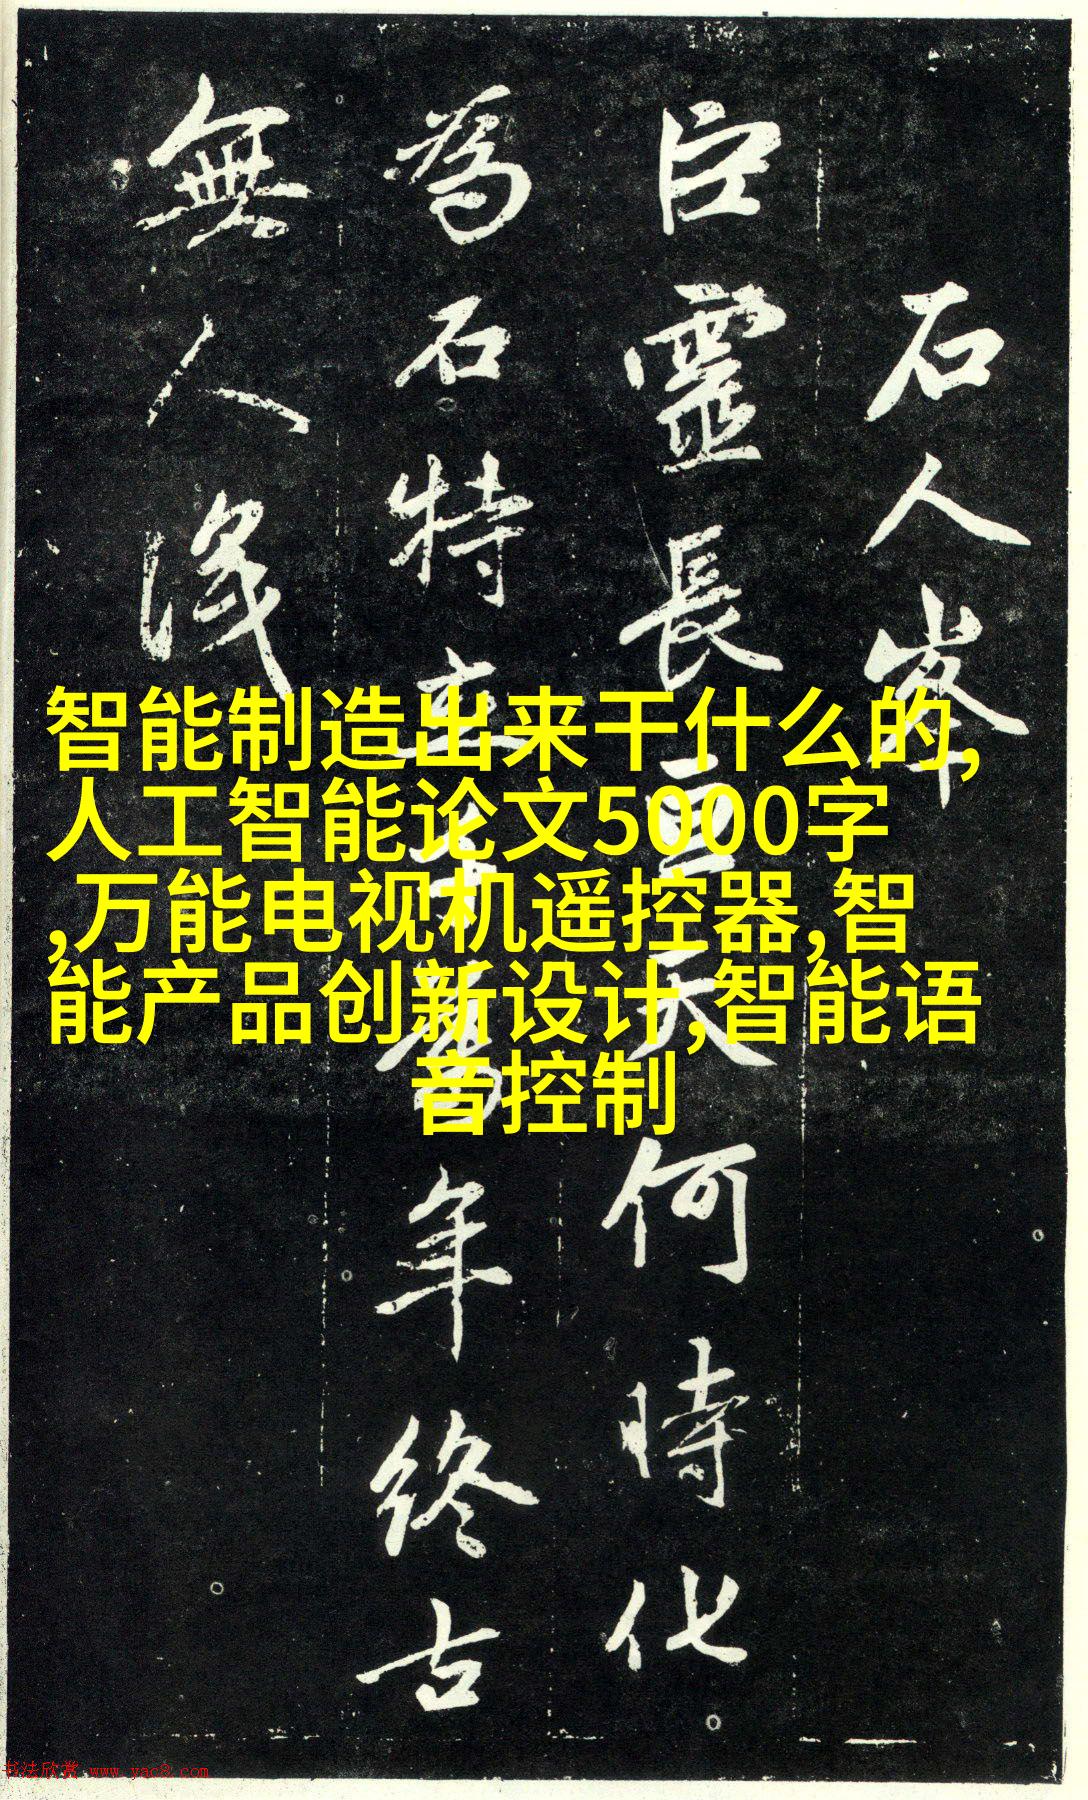 石人峯
巨靈長亘天何時化
為石特立萬年終古
無人識
智能制造出来干什么的,
人工智能论文5000字
,万能电视机遥控器,智
能产品创新设计,智能语
音控制
书法欣赏 www.yac8.com